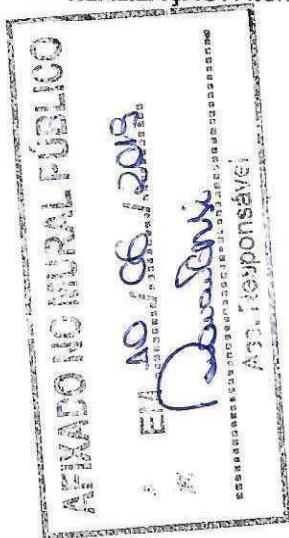 AFIXADO NO MURAL PÚBLICO
EM 10 / 06 / 2019
Ass. Responsável